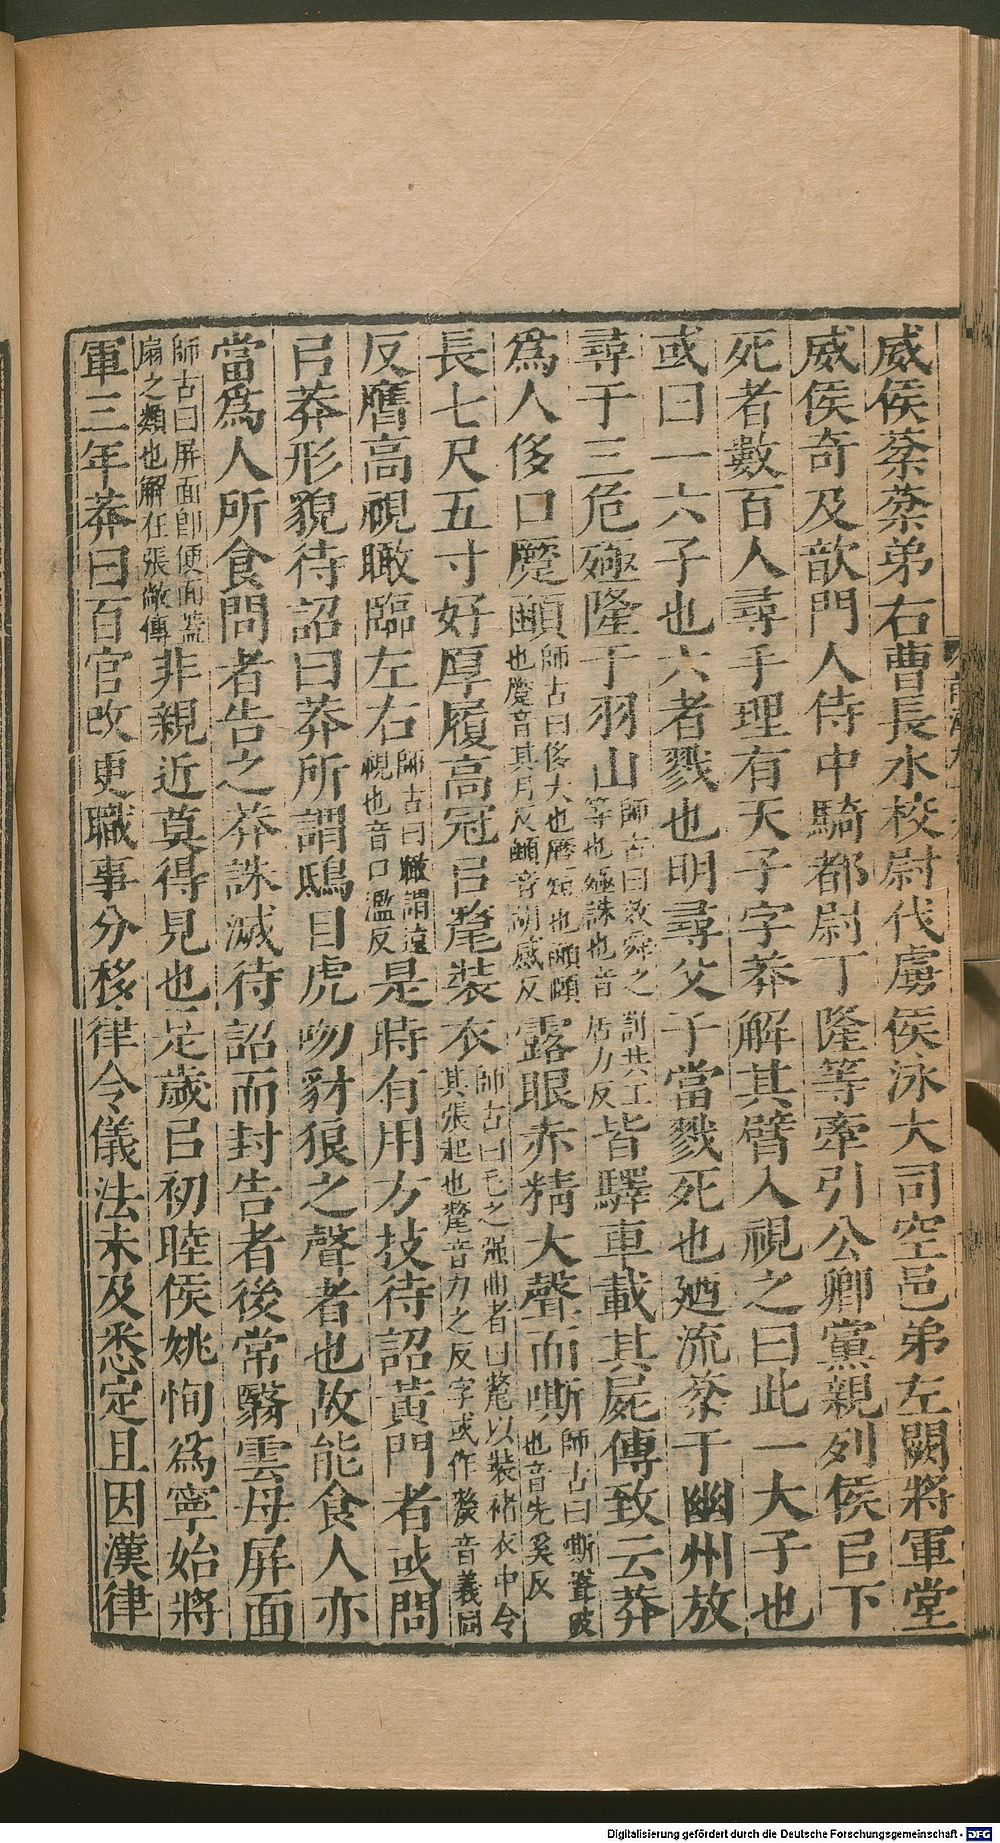 威侯棻棻弟右曹長水校尉代虜侯泳大司空邑弟左闕將軍堂
威侯奇及歆門人侍中騎都尉丁隆等牽引公卿黨親列侯㠯下
死者數百人尋手理有天子字莽解其臂入視之曰此一大子也
或曰一六子也六者戮也明尋父子當戮死也廼流棻于幽州放
尋于三危殛隆于羽山
師古曰效舜之罰共工
等也殛誅也音居力反
皆驛車載其屍傳致云莽
為人侈口蹷顄
師古曰侈大也蹷短也顄頤
也蹷音其月反顄音胡感反
露眼赤精大聲而嘶
師古曰嘶聲破
也音先奚反
長七尺五寸好厚履高冠㠯氂裝衣
師古曰毛之强曲者曰氂以裝褚衣中令
其張起也氂音力之反字或作斄音義同
反膺高視瞰臨左右
師古曰瞰謂遠
視也音口濫反
是時有用方技待詔黃門者或問
㠯莽形貌待詔曰莽所謂鴟目虎吻豺狼之聲者也故能食人亦
當為人所食問者告之莽誅滅待詔而封告者後常翳雲母屏面
師古曰屏面即便面蓋
扇之類也解在張敞傳
非親近莫得見也是歲㠯初睦侯姚恂為寧始將
軍三年莽曰百官改更職事分移律令儀法未及悉定且因漢律
Digitalisierung gefördert durch die Deutsche Forschungsgemeinschaft - DFG